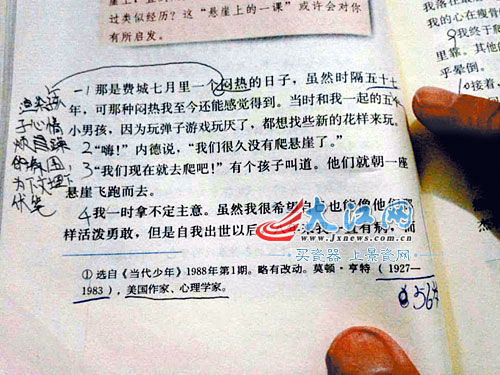 过类似经历？这“悬崖上的一课”或许会对你
有所启发。
那是费城七月里一个闷热的日子，虽然时隔五十七
年，可那种闷热我至今还能感觉得到。当时和我一起的五个
小男孩，因为玩弹子游戏玩厌了，都想找些新的花样来玩。
“嗨！”内德说，“我们很久没有爬悬崖了。”
“我们现在就去爬吧！”有个孩子叫道。他们就朝一座
悬崖飞跑而去。
我一时拿不定主意。虽然我很希望自己也能像他们那
样活泼勇敢，但是自我出世以后
①选自《当代少年》1988年第1期。略有改动。莫顿·亨特（1927—
1983），美国作家、心理学家。
1
2
3
4
为下文埋下
伏笔
56岁
大江网
www.jxnews.com.cn
买资器 上景资网
我的心在瘦骨
我终于爬
里靠。其他
乎晕倒。
接着，